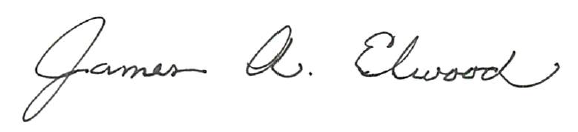 James A. Elwood